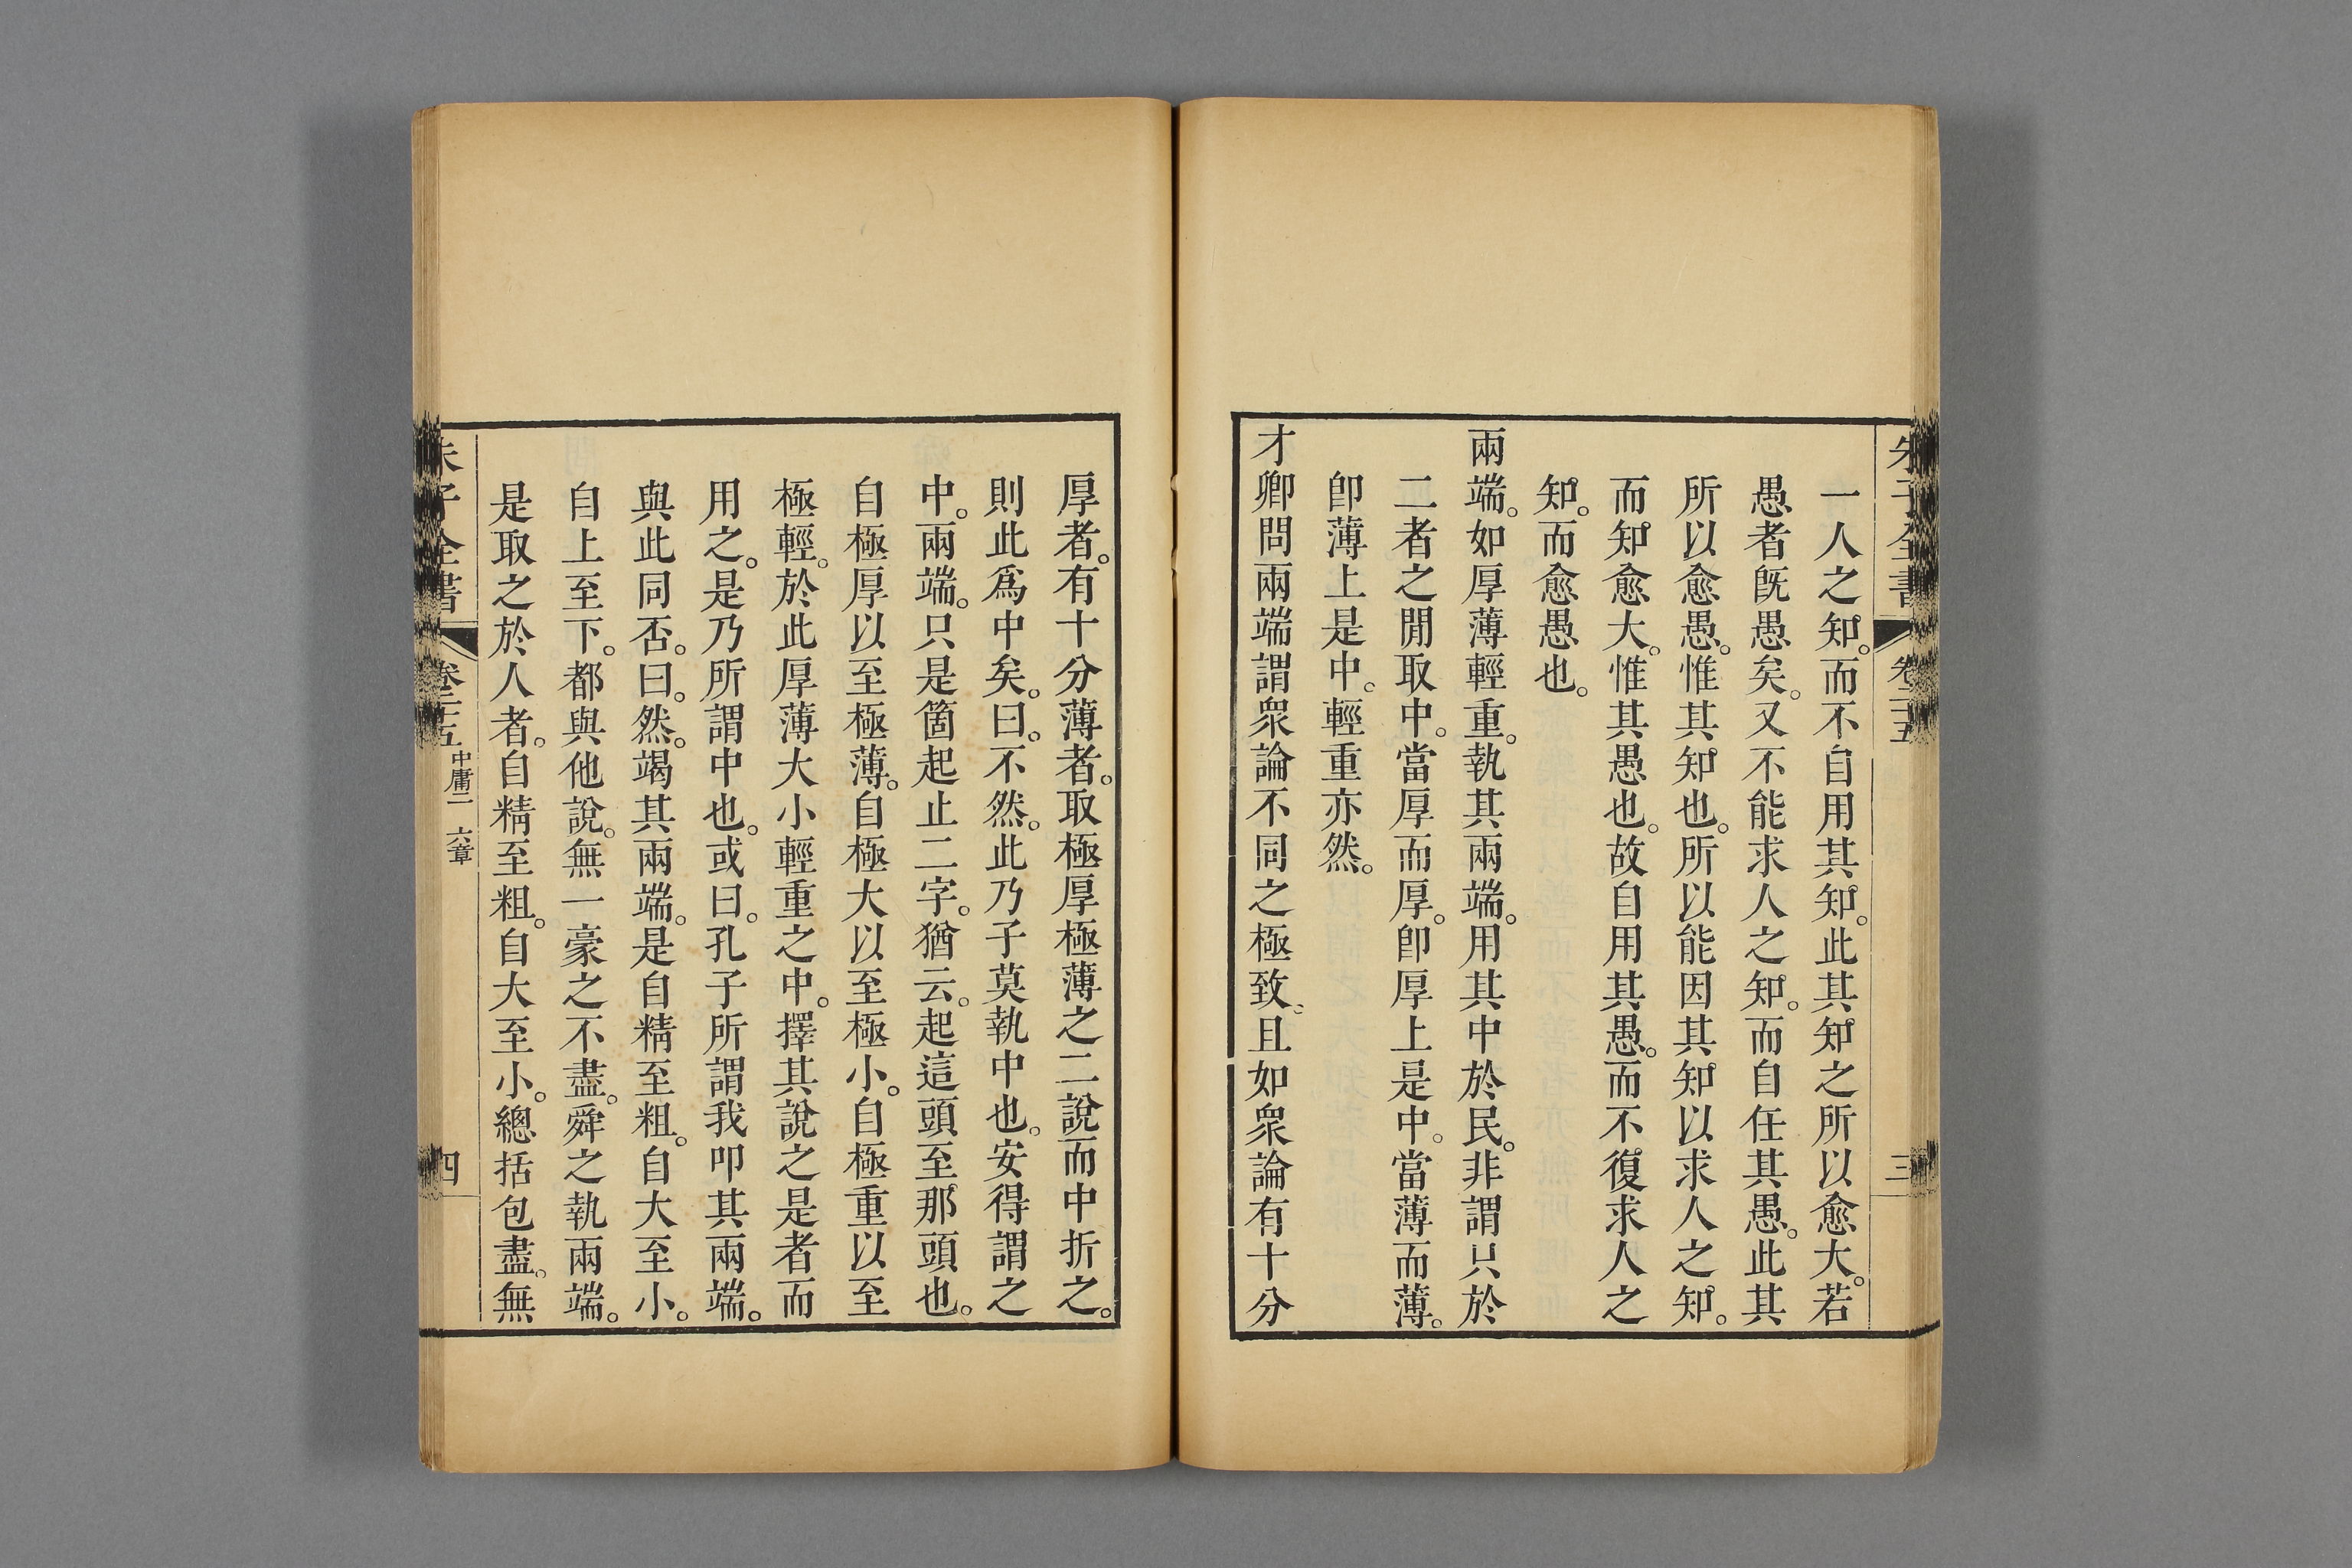 朱子全書 卷二十五 三
一人之知。而不自用其知。此其知之所以愈大。若
愚者旣愚矣。又不能求人之知。而自任其愚。此其
所以愈愚。惟其知也。所以能因其知以求人之知。
而知愈大。惟其愚也。故自用其愚。而不復求人之
知。而愈愚也。
兩端。如厚薄輕重。執其兩端。用其中於民。非謂只於
二者之閒取中。當厚而厚。卽厚上是中。當薄而薄。
卽薄上是中。輕重亦然。
才卿問兩端謂衆論不同之極致。且如衆論有十分
厚者。有十分薄者。取極厚極薄之二說而中折之。
則此爲中矣。曰。不然。此乃子莫執中也。安得謂之
中。兩端。只是箇起止二字。猶云。起這頭至那頭也。
自極厚以至極薄。自極大以至極小。自極重以至
極輕。於此厚薄大小輕重之中。擇其說之是者而
用之。是乃所謂中也。或曰。孔子所謂我叩其兩端。
與此同否。曰。然。竭其兩端。是自精至粗。自大至小。
自上至下。都與他說。無一豪之不盡。舜之執兩端。
是取之於人者。自精至粗。自大至小。總括包盡。無
朱子全書 卷二十五 中庸二 六章 四